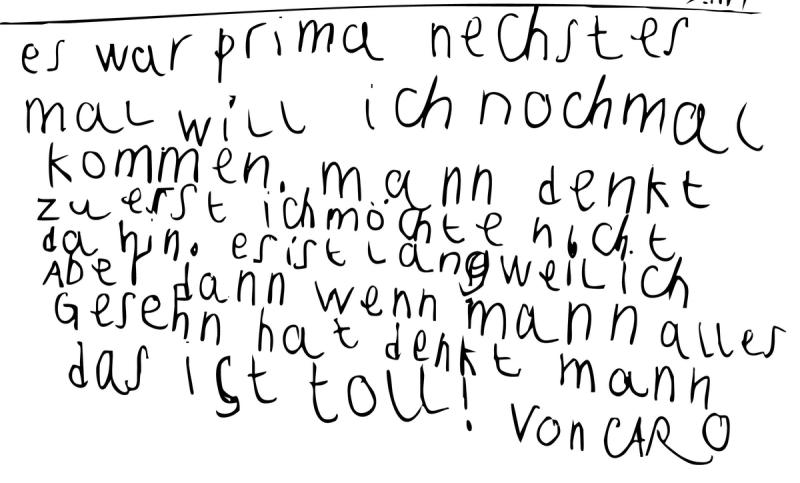 es war prima nechstes
mal will ich nochmal
kommen. mann denkt
zu erst ich möchte nicht
dahin. es ist langweilich
ABer dann wenn mann alles
Gesehn hat denkt mann
das ist toll!
Von CARO